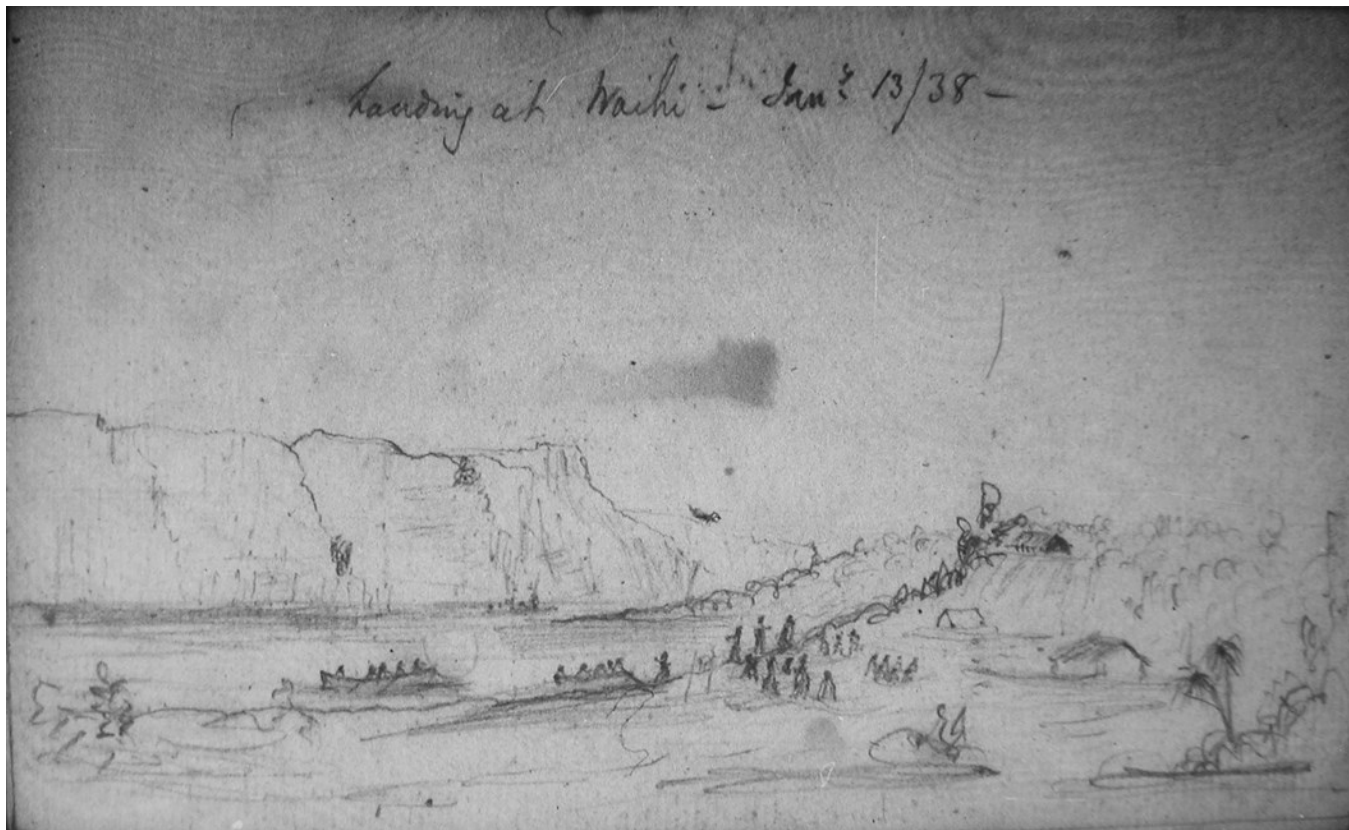 Landing at Waihi - Jany 13/38 -